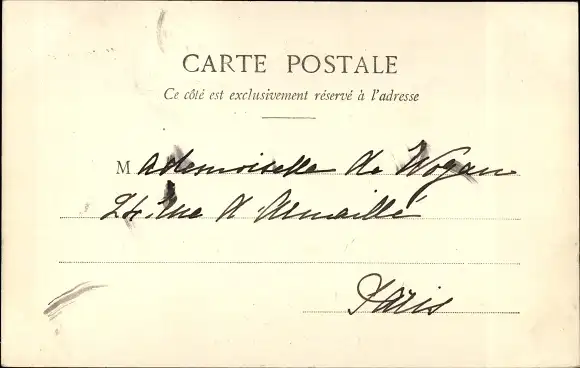 CARTE POSTALE
Ce côté est exclusivement réservé à l'adresse
Mademoiselle de Wogan
24 Rue d'Armaillé
Paris